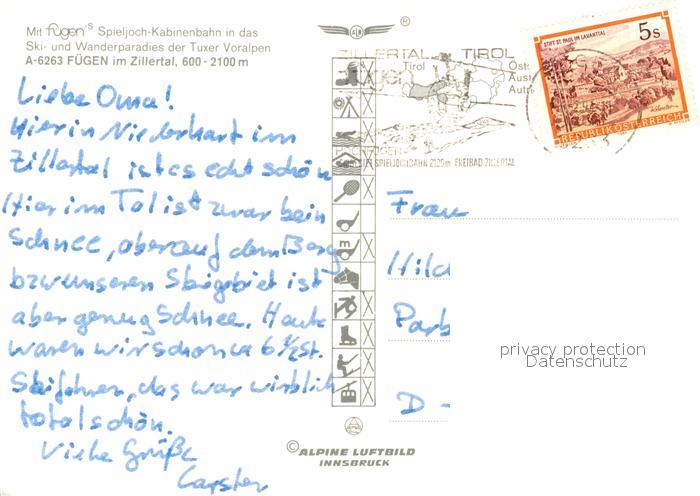 Mit fügen's Spieljoch-Kabinenbahn in das
Ski- und Wanderparadies der Tuxer Voralpen
A-6263 FÜGEN im Zillertal, 600 - 2100 m
Liebe Oma!
Hier in Niederhart im
Zillertal ist es echt schön
Hier im Tal ist zwar kein
Schnee, aber auf dem Berg
bzw unseren Skigebiet ist
aber genug Schnee. Heute
waren wir schon ca 6 1/2 St.
Skifahren, das war wirklich
total schön.
Viele Grüße
Carsten
ALM
®
ZILLERTAL TIROL
Tirol
SPIELJOCHBAHN 2100m FREIBAD ZILLERTAL
STIFT ST. PAUL IM LAVANTTAL
5s
REPUBLIK ÖSTERREICH
Frau
Hild
Parb
D -
privacy protection
Datenschutz
© ALPINE LUFTBILD
INNSBRUCK